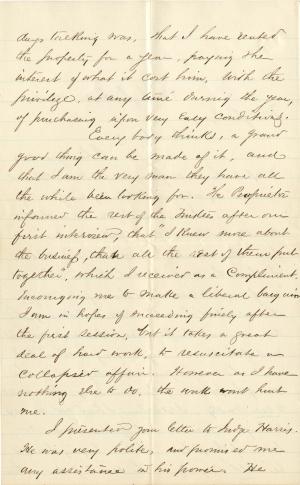 days talking was, that I have rented
the property for a year, paying the
interest of what it cost him, with the
privilege, at any time during the year,
of purchasing upon very easy conditions.
Every body thinks, a grand
good thing can be made of it, and
that I am the very man they have all
the while been looking for. The Proprietor
informed the rest of the Trustees after our
first interview, that "I knew more about
the business, than all the rest of them put
together", which I received as a Compliment.
Encouraging me to make a liberal bargain
I am in hopes of succeeding finely after
the first session, but it takes a great
deal of hard work, to resuscitate a
collapsed affair. However as I have
nothing else to do, the work wont hurt
me.
I presented your letter to Judge Harris.
He was very polite, and promised me
any assistance in his power. He